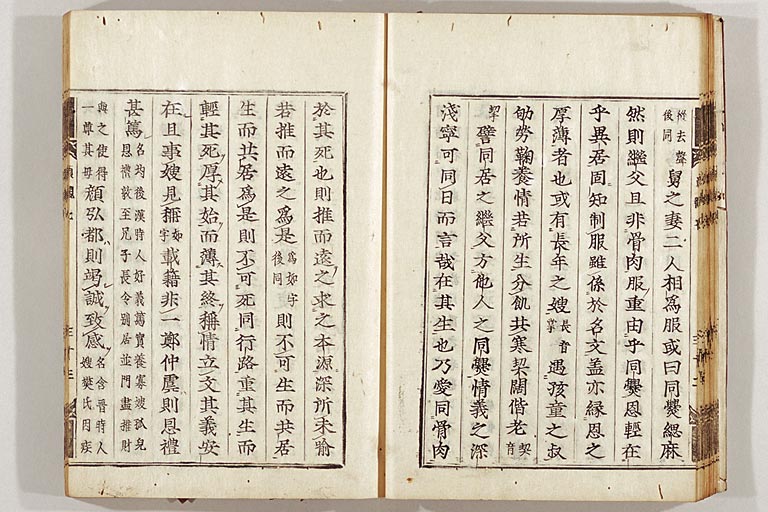 從去聲後同 舅之妻二人相爲服或曰同爨緦麻
然則繼父且非骨肉服重由乎同爨恩輕在
乎異居固知制服雖係於名文蓋亦緣恩之
厚薄者也或有長年之嫂 長音掌 遇孩童之叔
劬勞鞠養情若所生分飢共寒契闊偕老 契音
挈 譬同居之繼父方他人之同爨情義之深
淺寧可同日而言哉在其生也乃愛同骨肉
於其死也則推而遠之求之本源深所未喻
若推而遠之爲是 爲如字後同 則不可生而共居
生而共居爲是則不可死同行路重其生而
輕其死厚其始而薄其終稱情立文其義安
在且事嫂見稱 如字 載籍非一鄭仲虞則恩禮
甚篤 名均後漢時人好義篤實養寡嫂孤兒恩禮敦至兄子長令別居並門盡推財
與之使得一尊其母 顏弘都則竭誠致感 名含晉時人嫂樊氏因疾